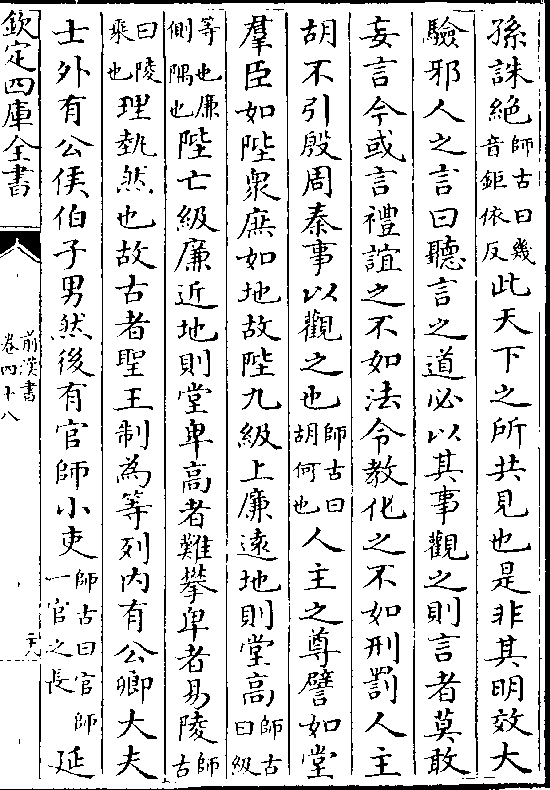 孫誅絶師古曰幾音鉅依反此天下之所共見也是非其明效大
驗邪人之言曰聽言之道必以其事觀之則言者莫敢
妄言今或言禮誼之不如法令教化之不如刑罰人主
胡不引殷周秦事以觀之也師古曰胡何也人主之尊譬如堂
羣臣如陛衆庶如地故陛九級上廉遠地則堂高師古曰級
等也廉側隅也陛亡級廉近地則堂卑高者難攀卑者易陵師古
曰陵乘也理埶然也故古者聖王制為等列内有公卿大夫
士外有公侯伯子男然後有官師小吏師古曰官師一官之長延
欽定四庫全書
前漢書
卷四十八
二十八